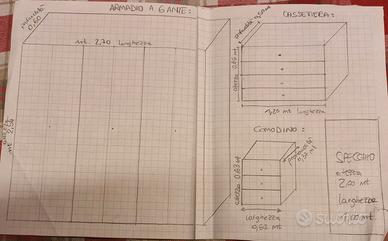 ARMADIO A 6 ANTE:
profondità
0,60
mt. 2,70 larghezza
mt 2,50
CASSETTIERA:
profondità 0,50 mt
altezza 0,85 mt
1,26 mt larghezza
COMODINO:
profondità
altezza 0,63 mt
larghezza
0,62 mt
SPECCHIO
altezza
2,00 mt
larghezza
1,00 mt
Subito